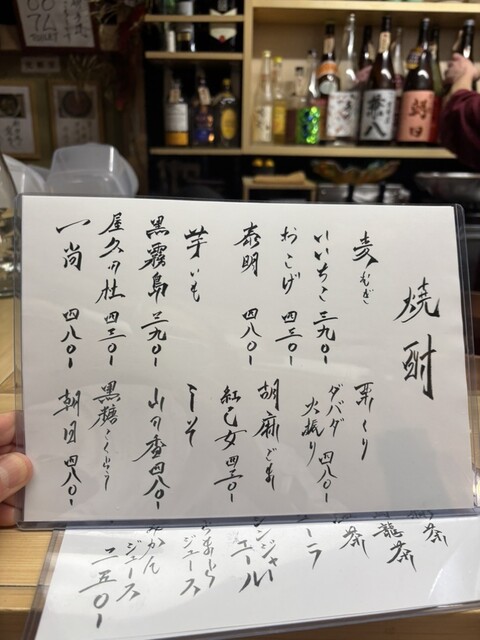 焼酎
麦 むぎ
いいちこ 三九〇ー
おこげ 四三〇ー
泰明 四八〇ー
芋 いも
黒霧島 三九〇ー
屋久の杜 四三〇ー
一尚 四八〇ー
栗 くり
ダバダ火振り 四八〇ー
胡麻 ごま
紅乙女 四三〇ー
しそ
山の香 四八〇ー
黒糖 こくとう
朝日 四八〇ー
茶
龍茶
茶
ーラ
ンジャーエール
ジュース
みかんジュース
二五〇ー
朝日